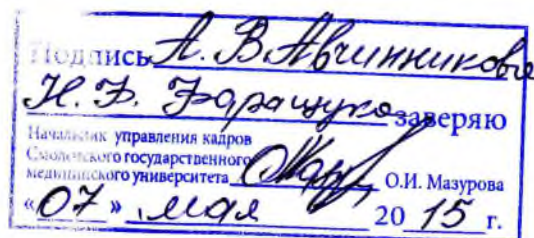 Подпись А. В Авчинникова
Н. Ф. Фаращука заверяю
Начальник управления кадров
Смоленского государственного
медицинского университета О.И. Мазурова
«07» мая 2015 г.